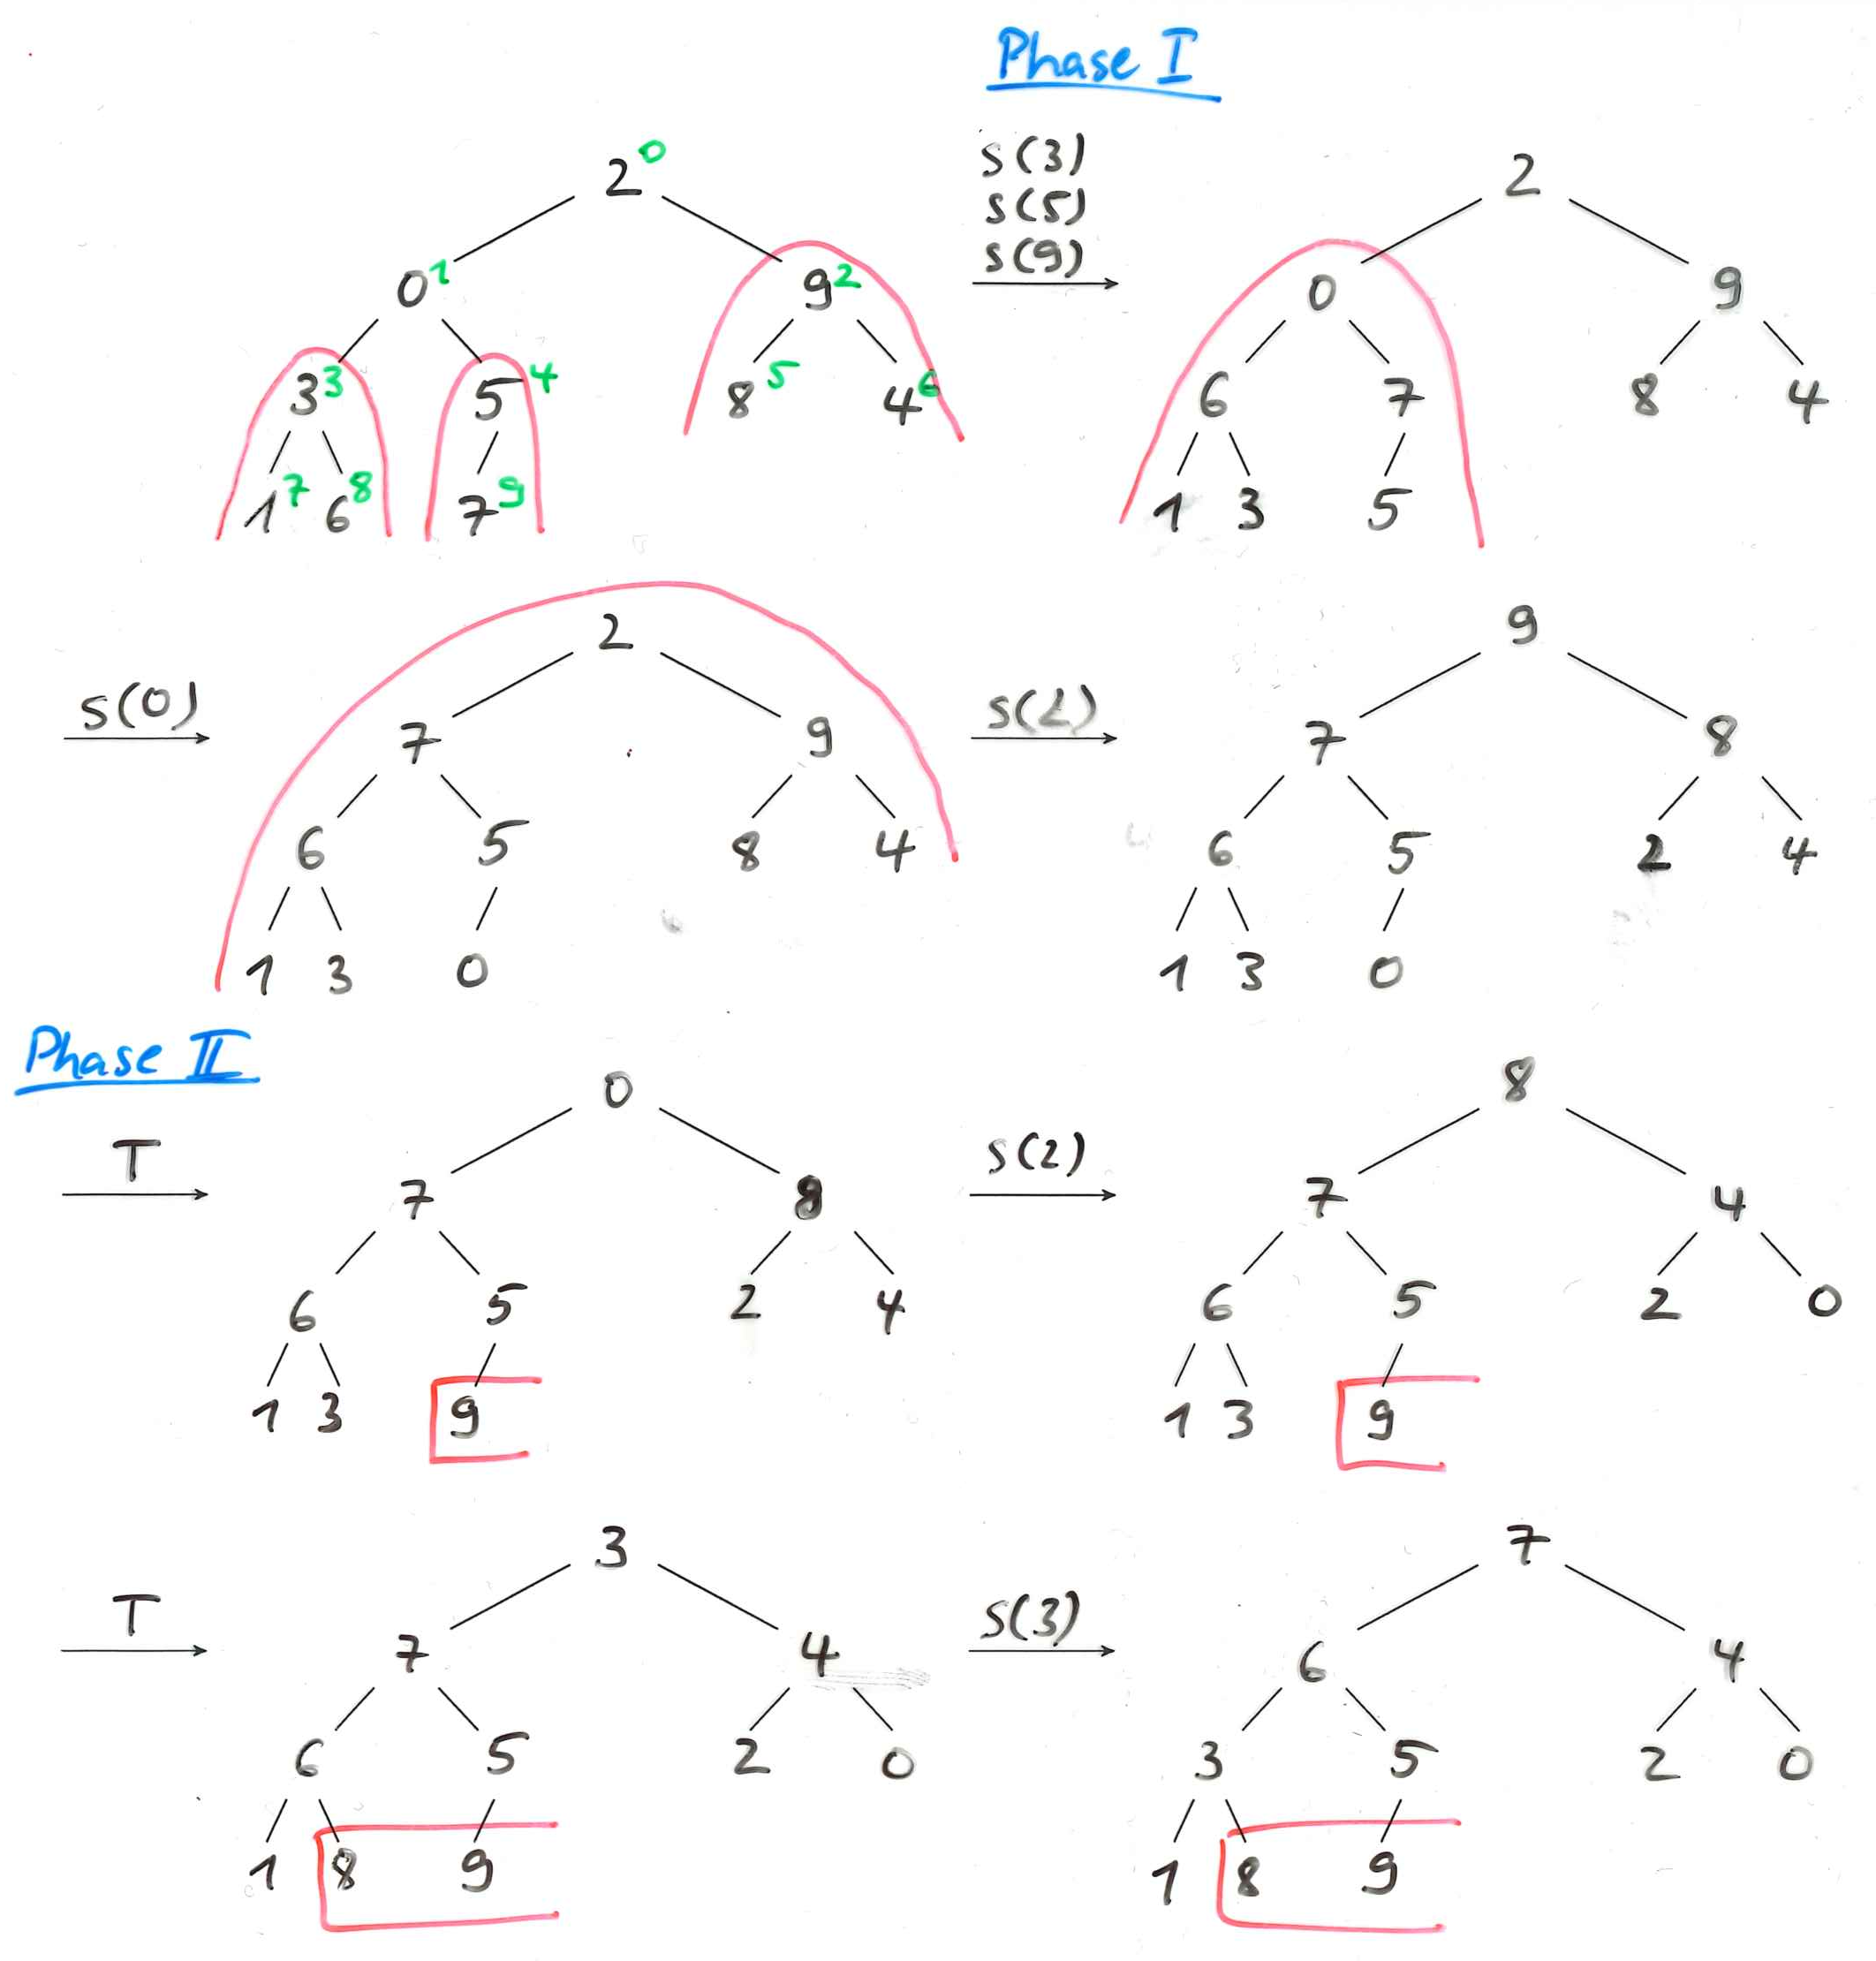 Phase I
2 0
0 1 9 2
3 3 5 4 8 5 4 6
1 7 6 8 7 9
S(3)
S(5)
S(9)
2
0 9
6 7 8 4
1 3 5
S(0)
2
7 9
6 5 8 4
1 3 0
S(2)
9
7 8
6 5 2 4
1 3 0
Phase II
T
0
7 8
6 5 2 4
1 3 9
S(2)
8
7 4
6 5 2 0
1 3 9
T
3
7 4
6 5 2 0
1 8 9
S(3)
7
6 4
3 5 2 0
1 8 9